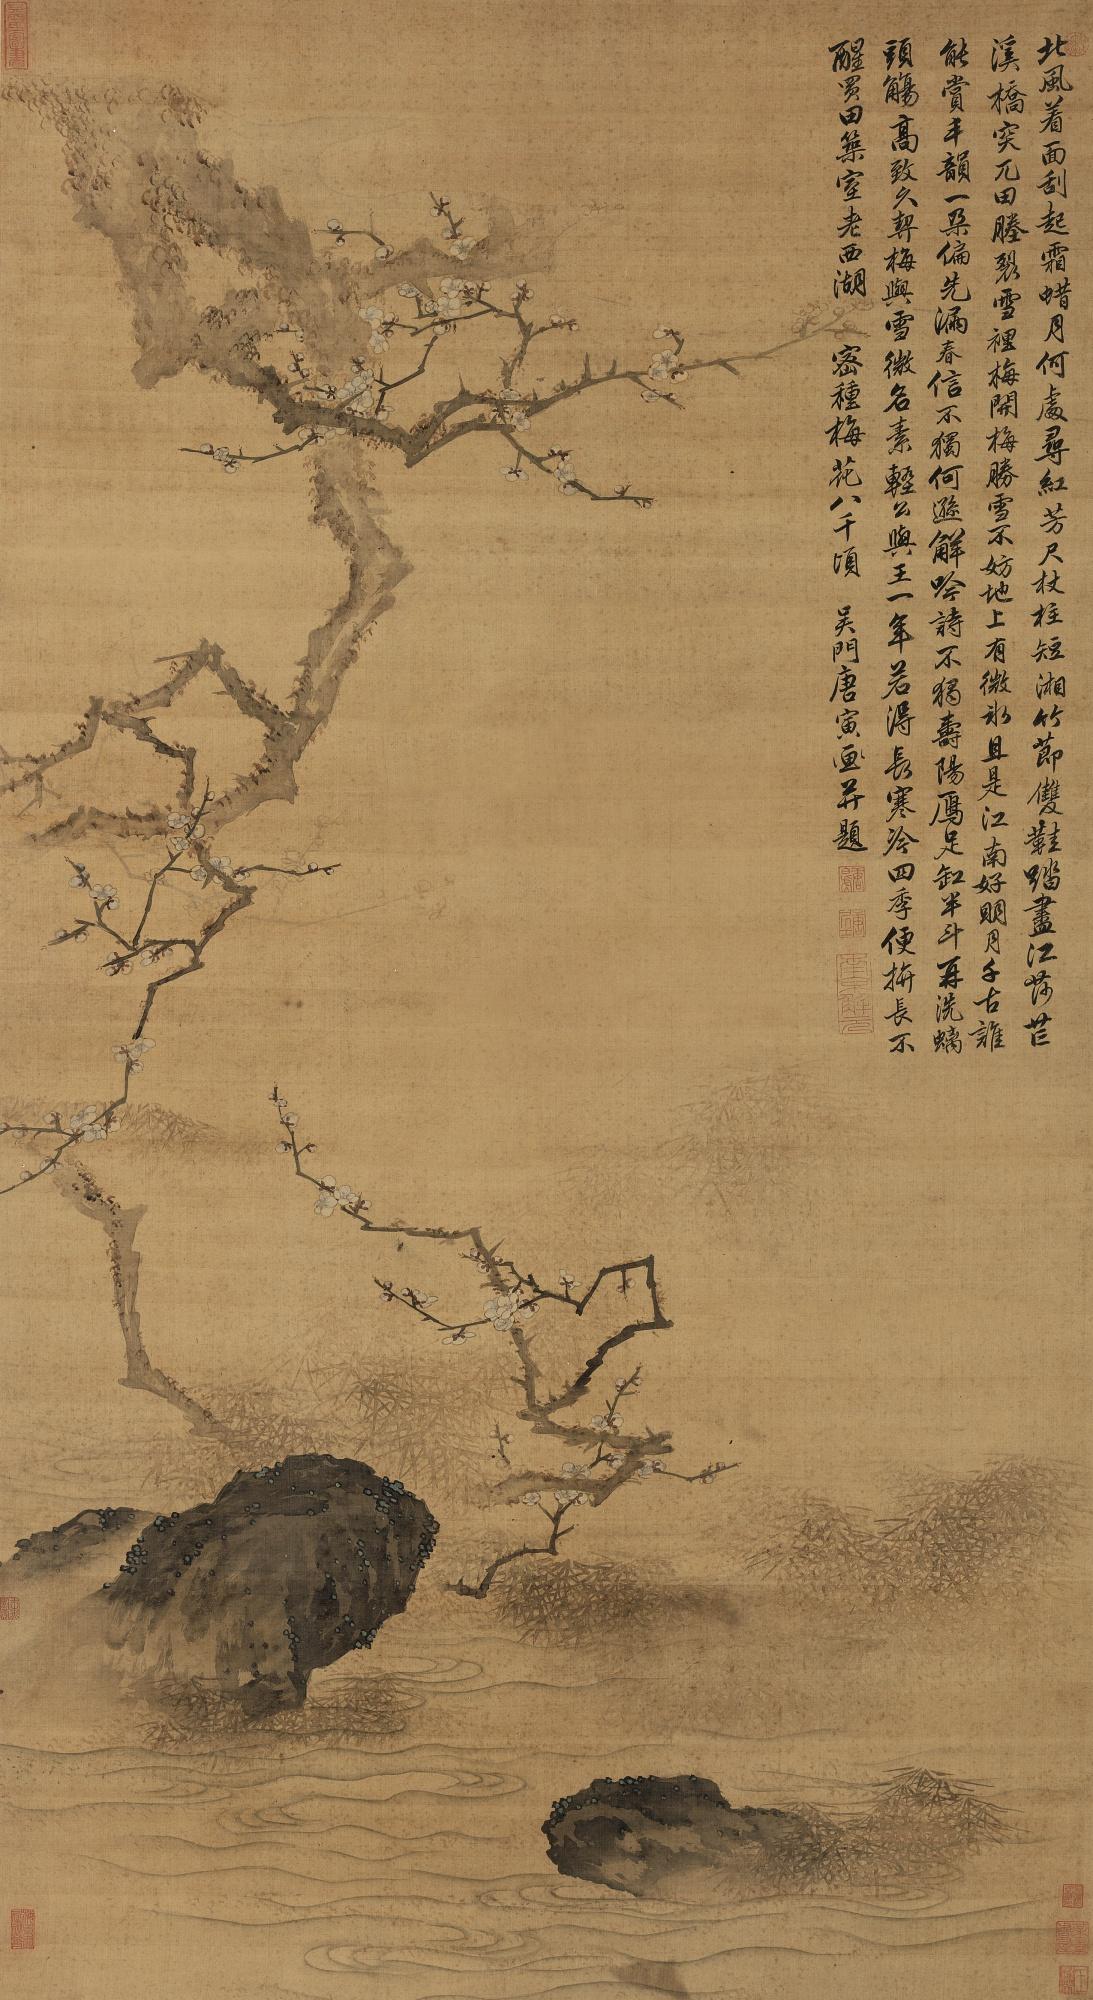 北風着面刮起霜蜡月何處尋紅芳尺杖柱短湘竹節雙鞋踏盡江莎芒
溪橋突兀田塍裂雪裡梅開梅勝雪不妨地上有微氷且是江南好朙月千古誰
能賞丰韻一朶偏先漏春信不獨何遜解吟詩不獨壽陽鴈足缸半斗再洗螭
頭觴高致久契梅與雪微名素輕公與王一年若得長寒冷四季便拚長不
醒買田築室老西湖 密種梅花八千頃 吳門唐寅画并題